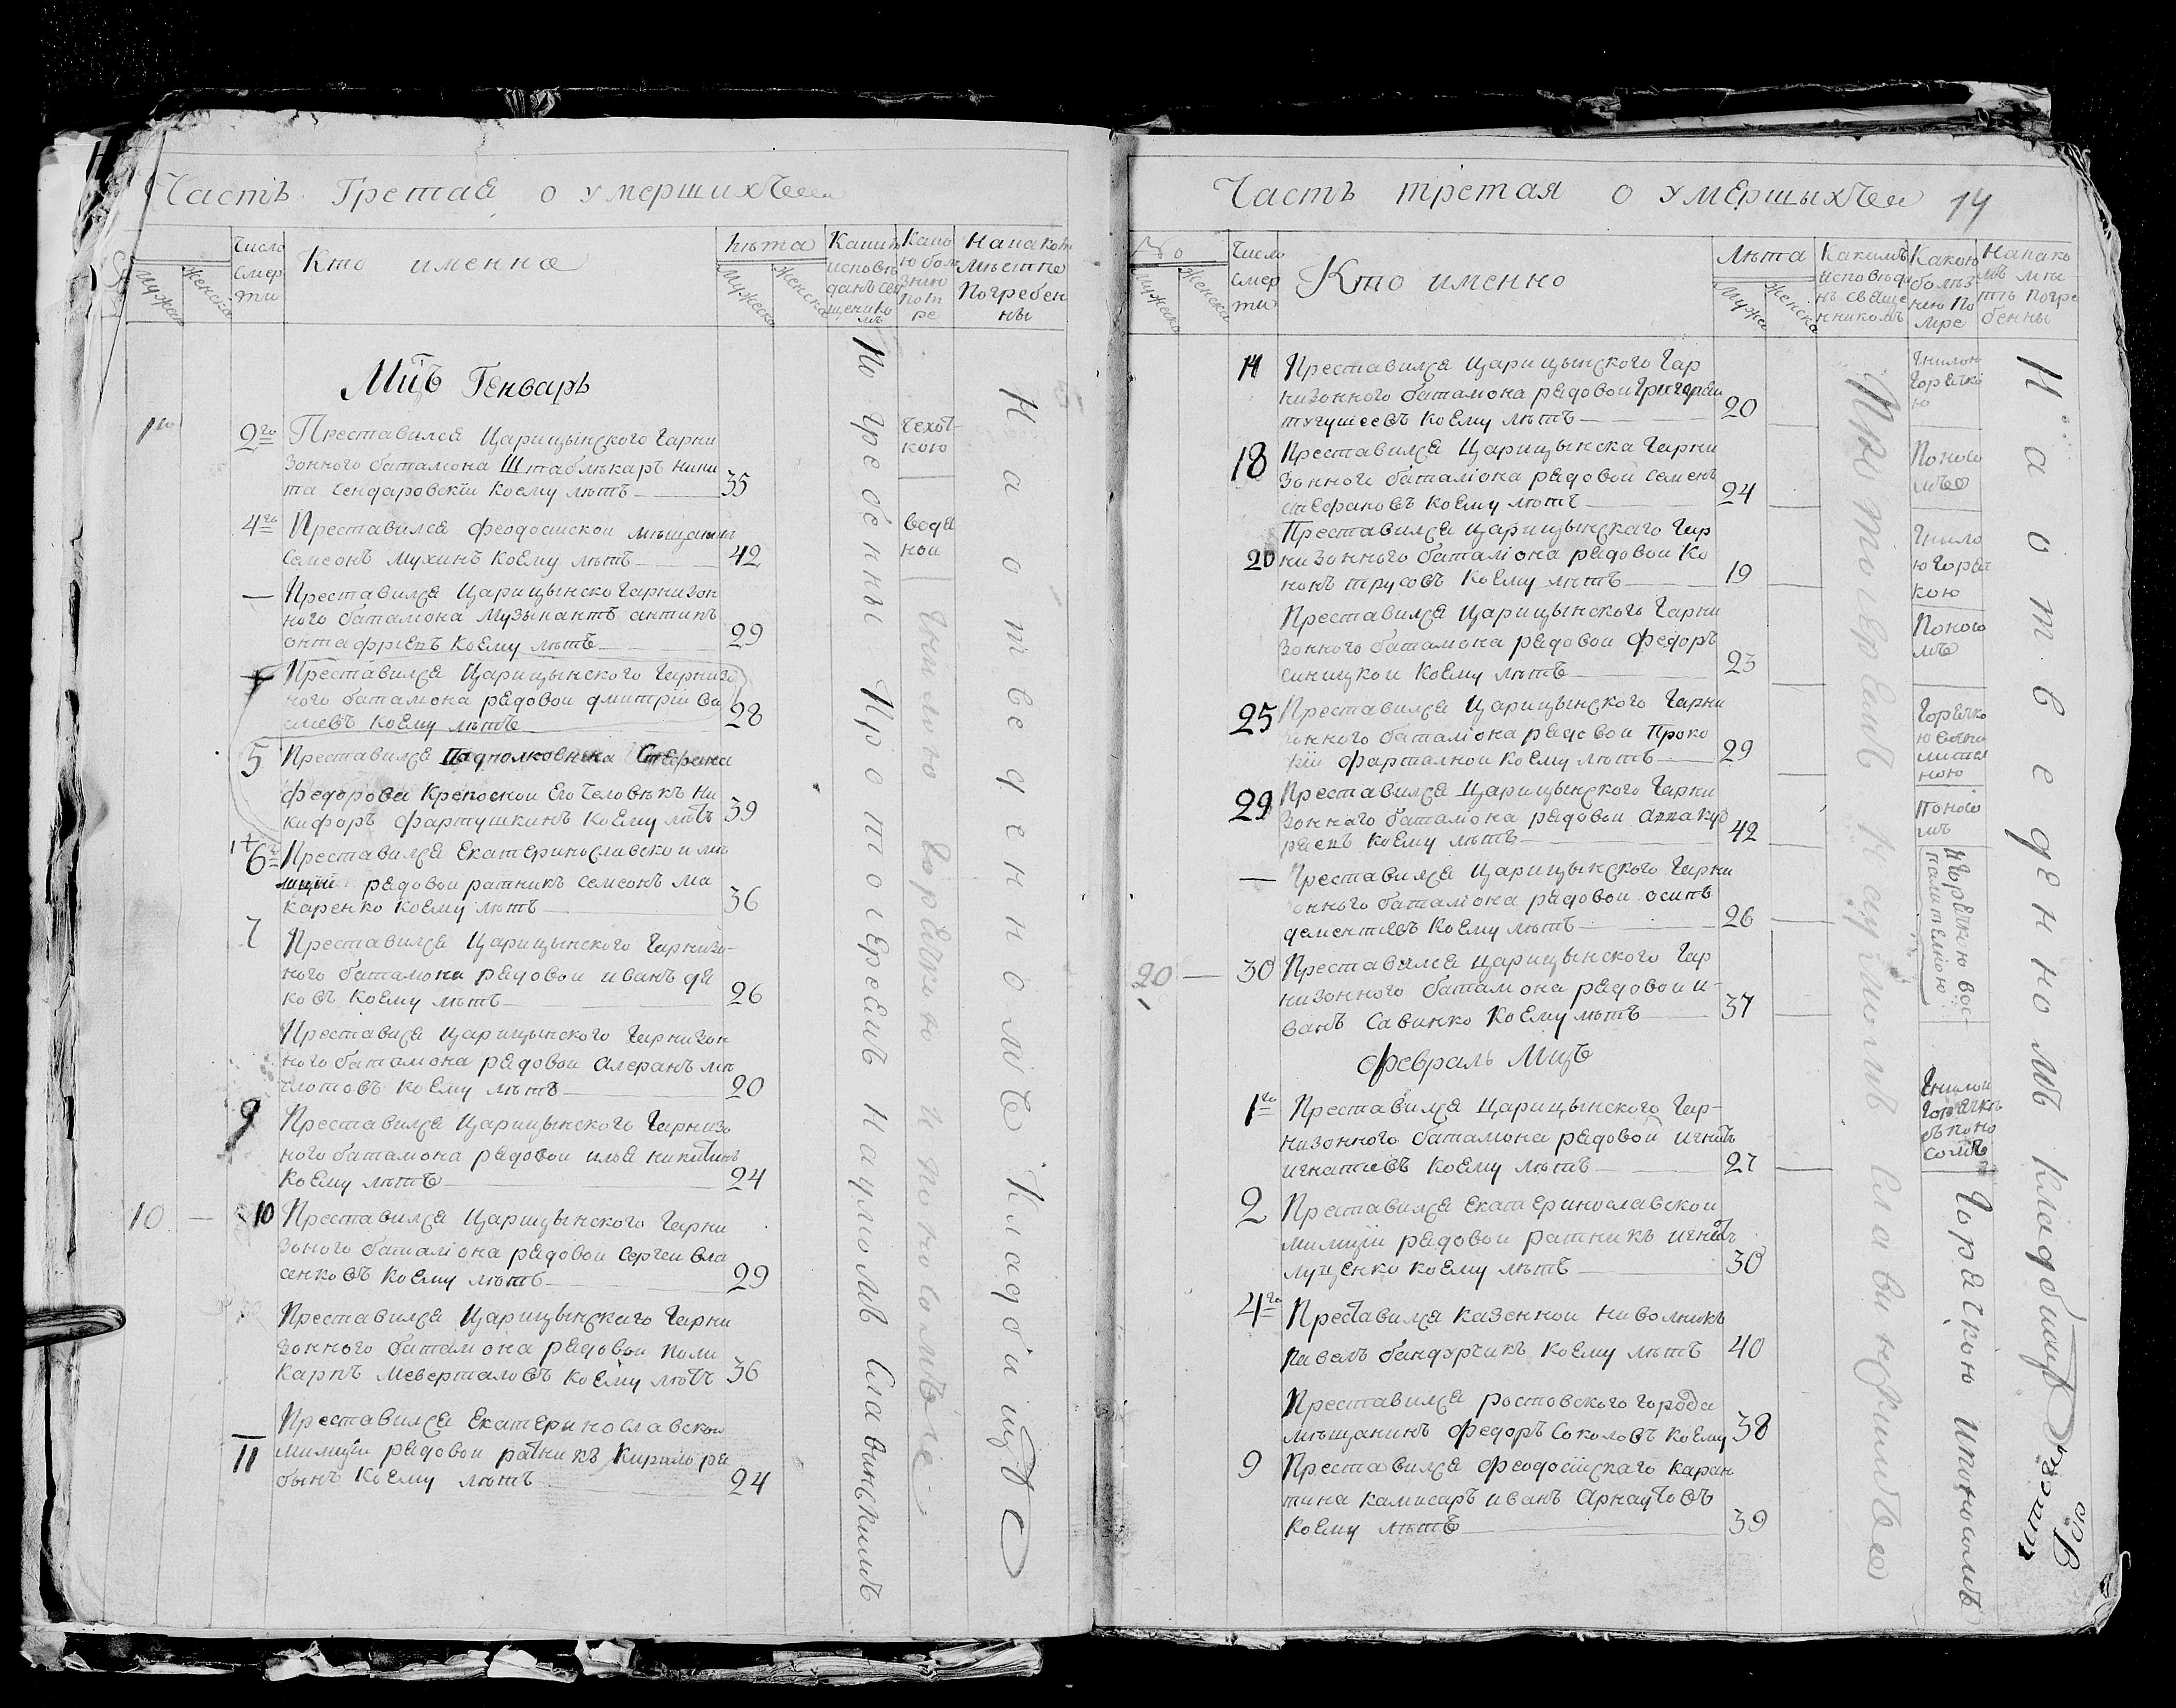 Часть Третая о умершихъ
Число смерти
Кто именно
Лѣта
Мужеска
Женска
Каким исповѣданъ священикомъ
Какою болѣзнию помре
На каком мѣсте Погребены
Мцъ Генварь
1го
2го
Преставился Царицынского Гарни
зонного баталиона Штаблѣкарь Ники
та Сендаровскій коему лѣтъ 35
Чехоткою
4го Преставился феодосискои мѣщанинъ
Самсонъ Мухинъ коему лѣтъ 42
водяной
— Преставился Царицынско Гарнизон
ного баталиона Музыкантъ антипъ
коему лѣтъ 29
Преставился Царицынского Гарнизо
ного баталиона рядовои дмитрій Ва
силевъ коему лѣтъ 28
5 Преставился Подполковника Стефана
федорова Крепоснои Его Человѣкъ Ни
кифоръ Фартушкинъ коему лѣтъ 39
6 Преставился Екатеринославскои ми
лиціи рядовои ратникъ Самсонъ Ма
каренко коему лѣтъ 36
7 Преставился Царицынского Гарнизо
ного баталиона рядовои иванъ дя
ковъ коему лѣтъ 26
Преставился Царицынского Гарнизон
ного баталиона рядовои
коему лѣтъ 20
9 Преставился Царицынского Гарнизо
ного баталиона рядовои илья никитинъ
коему лѣтъ 24
10 — 10 Преставился Царицынского Гарни
зоного баталіона рядовои Сергеи Вла
сенковъ коему лѣтъ 29
Преставился Царицынскаго Гарни
зонного баталиона рядовои Поли
карпъ Меверталовъ коему лѣтъ 36
11 Преставился Екатеринославскои
милиціи рядовои ратникъ Кирило ря
бынъ коему лѣтъ 24
Погребенны Протоиереемъ Наумомъ Славинскимъ
Гнилою горячкою и поносомъ
На отведенномъ Кладбищѣ
Часть третая о умершыхъ 14
Мужеска
Женска
Число смерти
Кто именно
Лѣта
Мужеска
Женска
Какимъ исповѣданъ священникомъ
Какою болѣзнию помре
На какомъ мѣстѣ погребенны
14 Преставился Царицынского Гар
низонного баталиона рядовои Григореи
тугушеевъ коему лѣтъ 20
Гнилою Горячкою
18 Преставился Царицынска Гарни
зонного баталіона рядовои семенъ
стефановъ коему лѣтъ 24
Поносомъ
20 Преставился Царицынскаго Гар
низонного баталіона рядовои Ко
нонъ трусовъ коему лѣтъ 19
Гнилою Горячкою
Преставился Царицынского Гарни
зонного баталиона рядовои Федоръ
синицкои коему лѣтъ 23
Поносомъ
25 Преставился Царицынского Гарни
зонного баталіона рядовои Проко
фарталнои коему лѣтъ 29
Горячкою
29 Преставился Царицынского Гарни
зонного баталіона рядовои
коему лѣтъ 42
Поносомъ
— Преставился Царицынского Гарни
зонного баталіона рядовои осипъ
дементиевъ коему лѣтъ 26
Горячкою воспалителною
20 — 30 Преставился Царицынского Гар
низонного баталиона рядовои и-
ванъ Савинко коему лѣтъ 37
Февраль Мцъ
1го Преставился Царицынского Гар-
низонного баталиона рядовои игнатъ
игнатиевъ коему лѣтъ 27
Гнилои горячки съ поносомъ
2 Преставился Екатеринославскои
милиціи рядовои ратникъ игнатъ
луценко коему лѣтъ 30
4го Преставился казеннои Неволникъ
Павелъ бандурчикъ коему лѣтъ 40
Преставился ростовского города
мѣщанинъ Федоръ Соколовъ коему 38
9 Преставился феодосійскаго каран
тина камисаръ иванъ Арнаутовъ
коему лѣтъ 39
Протоиереемъ Наумомъ Славинскимъ
Горячкою и поносомъ
На отведенномъ кладбищѣ